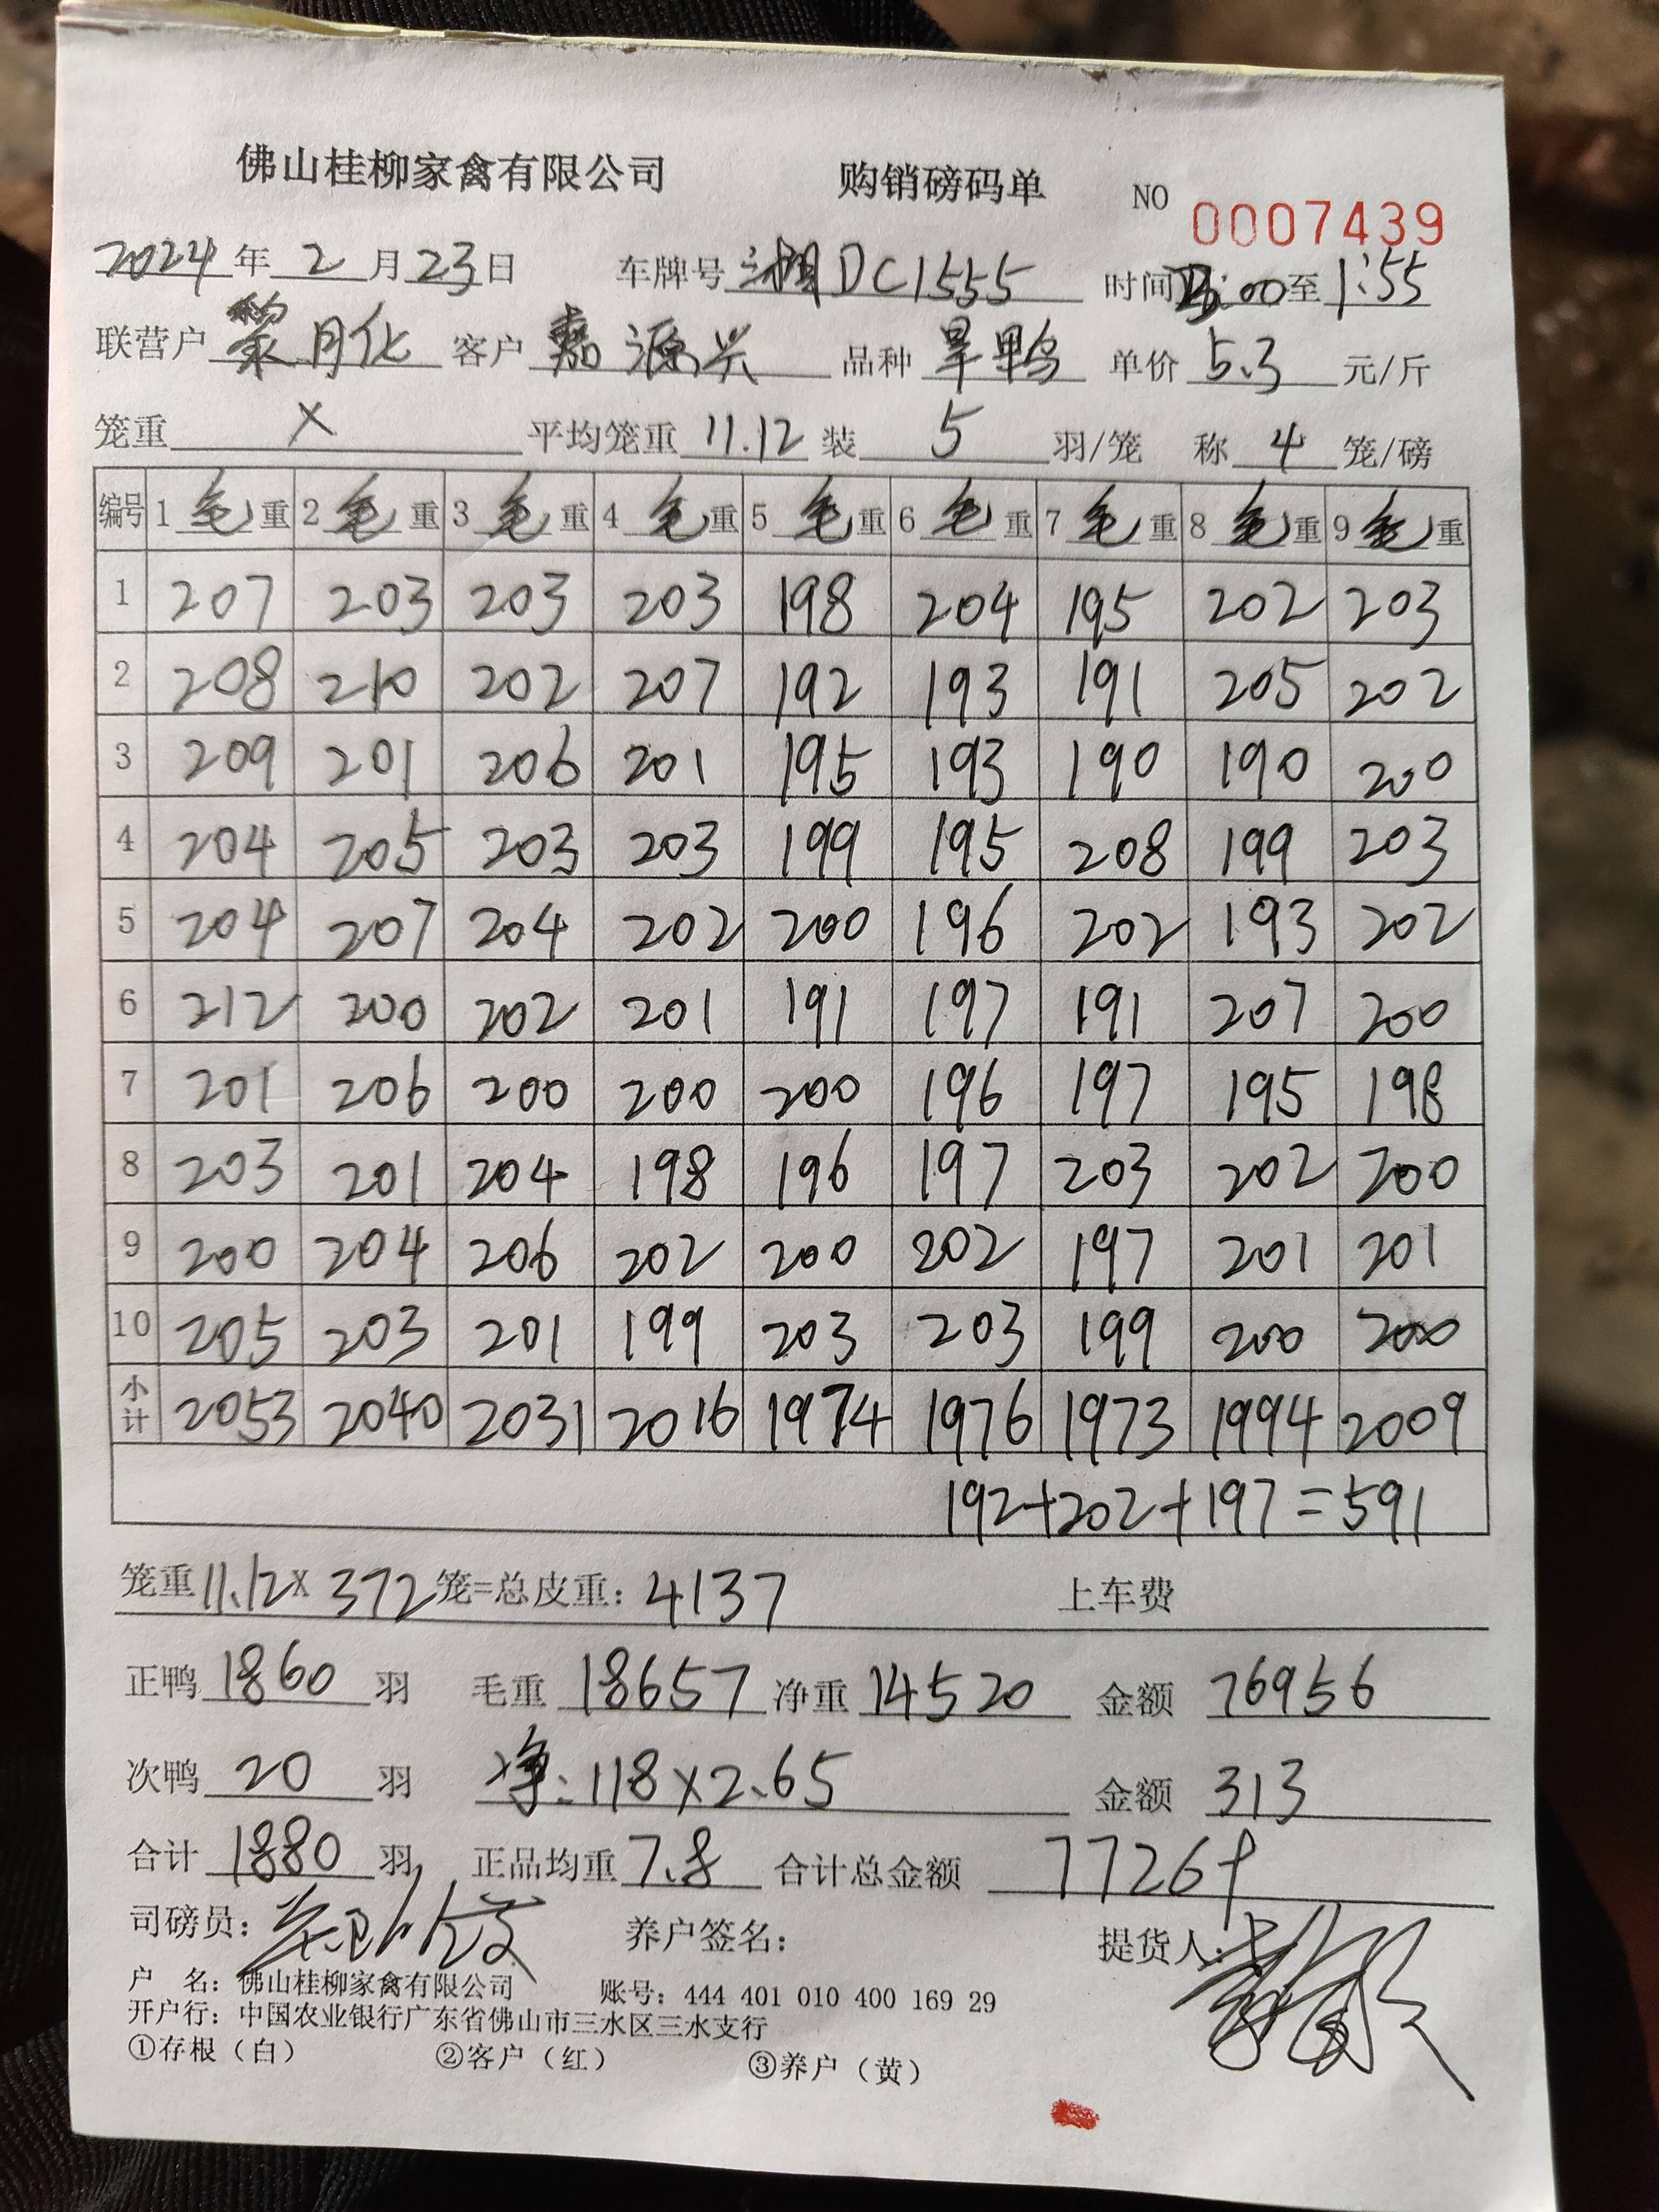 佛山桂柳家禽有限公司 购销磅码单 NO 0007439
2024年2月23日 车牌号 湘DC1555 时间 :00至1:55
联营户 黎月化 客户 嘉源兴 品种 旱鸭 单价 5.3 元/斤
笼重 X 平均笼重 11.12 装 5 羽/笼 称 4 笼/磅
编号 1毛重 2毛重 3毛重 4毛重 5毛重 6毛重 7毛重 8毛重 9毛重
1 207 203 203 203 198 204 195 202 203
2 208 210 202 207 192 193 191 205 202
3 209 201 206 201 195 193 190 190 200
4 204 205 203 203 199 195 208 199 203
5 204 207 204 202 200 196 202 193 202
6 212 200 202 201 191 197 191 207 200
7 201 206 200 200 200 196 197 195 198
8 203 201 204 198 196 197 203 202 200
9 200 204 206 202 200 202 197 201 201
10 205 203 201 199 203 203 199 200 200
小计 2053 2040 2031 2016 1974 1976 1973 1994 2009
192+202+197=591
笼重11.12X 372笼=总皮重：4137 上车费
正鸭 1860 羽 毛重 18657 净重 14520 金额 76956
次鸭 20 羽 净：118×2.65 金额 313
合计 1880 羽 正品均重 7.8 合计总金额 77269
司磅员： 养户签名： 提货人：
户 名：佛山桂柳家禽有限公司 账号：444 401 010 400 169 29
开户行：中国农业银行广东省佛山市三水区三水支行
①存根（白） ②客户（红） ③养户（黄）